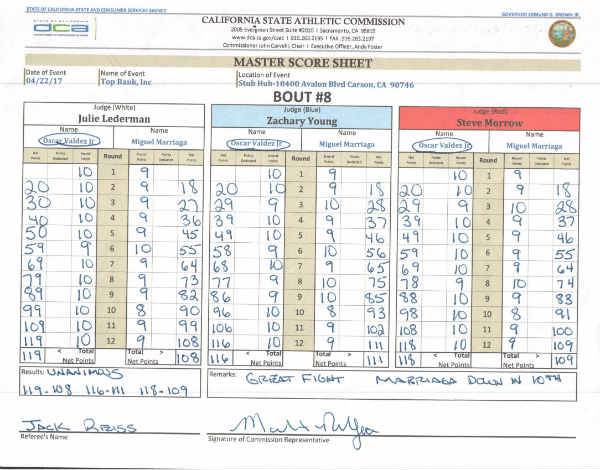 STATE OF CALIFORNIA STATE AND CONSUMER SERVICES AGENCY GOVERNOR EDMUND G. BROWN JR.
dca
CALIFORNIA STATE ATHLETIC COMMISSION
2005 Evergreen Street Suite #2010 | Sacramento, CA 95815
www.dca.ca.gov/csac | 916.263.2195 | FAX 916.263.2197
Commissioner John Carvelli, Chair | Executive Officer, Andy Foster
MASTER SCORE SHEET
Date of Event Name of Event Location of Event
04/22/17 Top Rank, Inc Stub Hub-18400 Avalon Blvd Carson, CA 90746
BOUT #8
Judge (White) Judge (Blue) Judge (Red)
Julie Lederman Zachary Young Steve Morrow
Name Name Name Name Name Name
Oscar Valdez Jr Miguel Marriaga Oscar Valdez Jr Miguel Marriaga Oscar Valdez Jr Miguel Marriaga
Net Points Points Deducted Round Points Round Round Points Points Deducted Net Points Net Points Points Deducted Round Points Round Round Points Points Deducted Net Points Net Points Points Deducted Round Points Round Round Points Points Deducted Net Points
10 1 9 10 1 9 10 1 9
20 10 2 9 18 20 10 2 9 18 20 10 2 9 18
30 10 3 9 27 29 9 3 10 28 29 9 3 10 28
40 10 4 9 36 39 10 4 9 37 39 10 4 9 37
50 10 5 9 45 49 10 5 9 46 49 10 5 9 46
59 9 6 10 55 58 9 6 10 56 59 10 6 9 55
69 10 7 9 64 68 10 7 9 65 69 10 7 9 64
79 10 8 9 73 77 9 8 10 75 78 9 8 10 74
89 10 9 9 82 86 9 9 10 85 88 10 9 9 83
99 10 10 8 90 96 10 10 8 93 98 10 10 8 91
109 10 11 9 99 106 10 11 9 102 108 10 11 9 100
119 10 12 9 108 116 10 12 9 111 118 10 12 9 109
119 < Total > 108 116 < Total > 111 118 < Total > 109
Net Points Net Points Net Points
Results: UNANIMOUS Remarks: GREAT FIGHT MARRIAGA DOWN IN 10TH
119-108 116-111 118-109
JACK REISS
Referee's Name Signature of Commission Representative